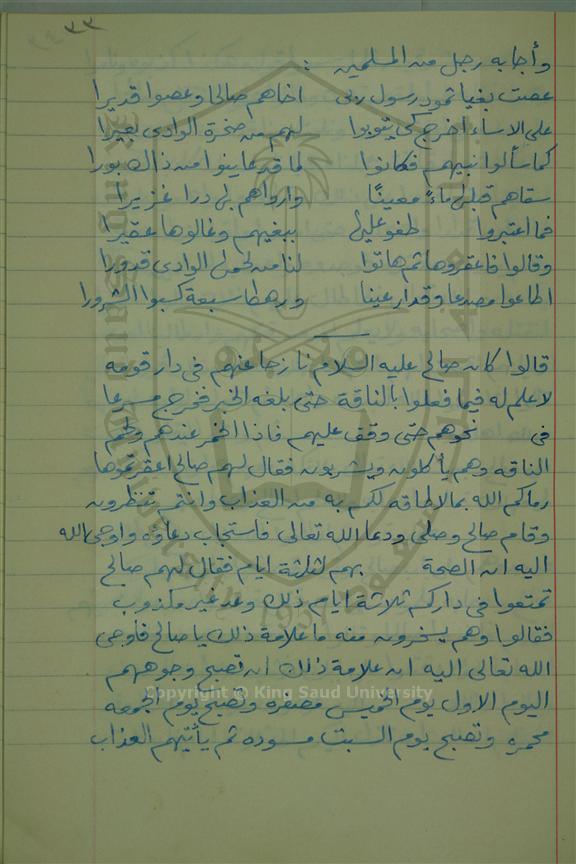 ٣٣
وأجابه رجل من المسلمين :
عصت بغيا ثمود رسول ربى اخاهم صالحا وعصوا قديرا
على الاساء اخرج كى يتوبوا لهم من صخرة الوادى بعيرا
كما سألوا نبيهم فكانوا لما قد عاينوا من ذاك بورا
سقاهم قبل ماءً معينًا وارواهم بى درا غزيرا
فما اعتبروا طغو عليها ببغيهم وغالوها عقيرا
وقالوا فاعقروها ثم هاتوا لنا من لحمها الوادى قدورا
اطاعوا مصدعا وقدار عينا ورهطا سبعة كسبوا الشرورا
قالوا كان صالح عليه السلام نازحا عنهم فى دار قومه
لا علم له فيما فعلوا بالناقة حتى بلغه الخبر فخرج مسرعا
فى نحوهم حتى وقف عليهم فاذا الخمر عندهم ولحم
الناقه وهم يأكلون ويشربون فقال لهم صالح اعقرتموها
رماكم الله بما لا طاقه لكم به من العذاب وانتم تنظرون
وقام صالح وصلى ودعا الله تعالى فاستجاب دعاؤه واوحى الله
اليه ان الصحة بهم لثلثة ايام فقال لهم صالح
تمتعوا فى داركم ثلاثة ايام ذلك وعد غير مكذوب
فقالوا وهم يسخرون منه ما علامة ذلك يا صالح فأوحى
الله تعالى اليه ان علامة ذلك ان تصبح وجوههم
اليوم الاول يوم الخميس مصفره وتصبح يوم الجمعه
محمره وتصبح يوم السبت مسوده ثم يأتيهم العذاب
Copyright © King Saud University